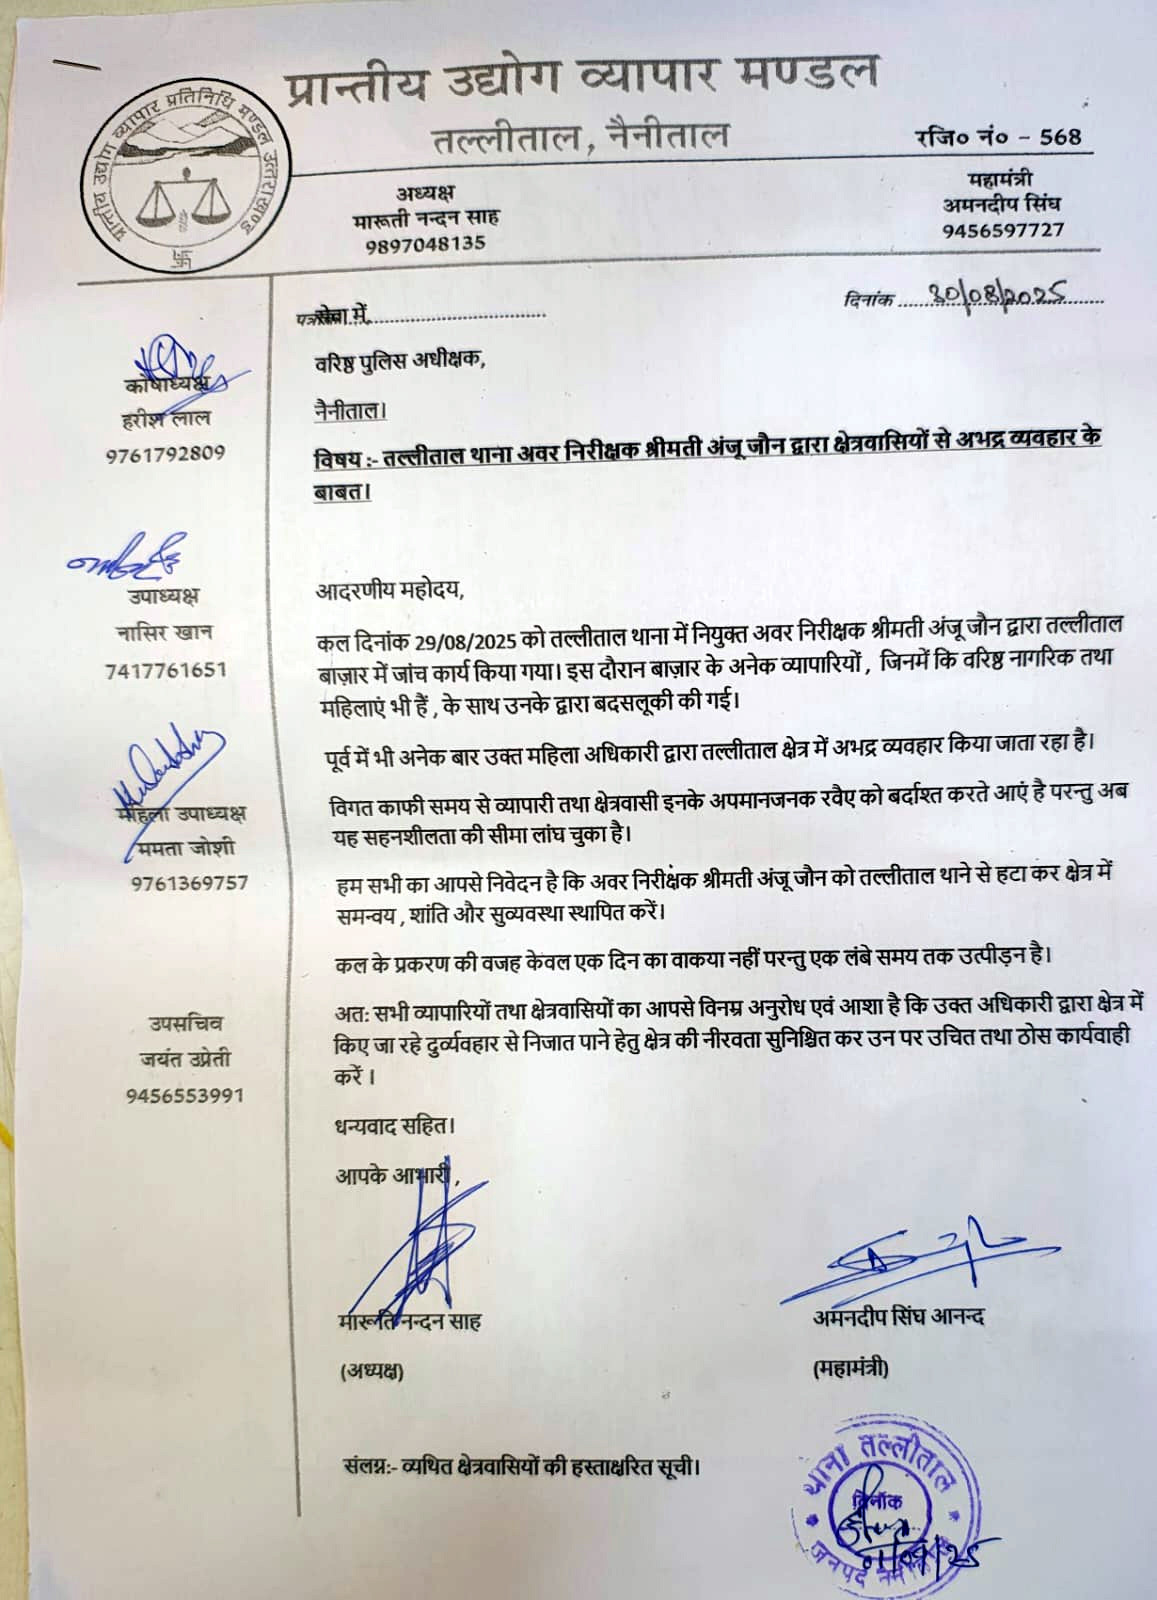 प्रान्तीय उद्योग व्यापार मण्डल
तल्लीताल, नैनीताल
रजि० नं० - 568
प्रान्तीय उद्योग व्यापार प्रतिनिधि मण्डल उत्तराखण्ड
अध्यक्ष
मारूती नन्दन साह
9897048135
महामंत्री
अमनदीप सिंघ
9456597727
सेवा में,
दिनांक 30/08/2025
कोषाध्यक्ष
हरीश लाल
9761792809
उपाध्यक्ष
नासिर खान
7417761651
महिला उपाध्यक्ष
ममता जोशी
9761369757
उपसचिव
जयंत उप्रेती
9456553991
वरिष्ठ पुलिस अधीक्षक,
नैनीताल।
विषय :- तल्लीताल थाना अवर निरीक्षक श्रीमती अंजू जौन द्वारा क्षेत्रवासियों से अभद्र व्यवहार के
बाबत।
आदरणीय महोदय,
कल दिनांक 29/08/2025 को तल्लीताल थाना में नियुक्त अवर निरीक्षक श्रीमती अंजू जौन द्वारा तल्लीताल
बाज़ार में जांच कार्य किया गया। इस दौरान बाज़ार के अनेक व्यापारियों , जिनमें कि वरिष्ठ नागरिक तथा
महिलाएं भी हैं , के साथ उनके द्वारा बदसलूकी की गई।
पूर्व में भी अनेक बार उक्त महिला अधिकारी द्वारा तल्लीताल क्षेत्र में अभद्र व्यवहार किया जाता रहा है।
विगत काफी समय से व्यापारी तथा क्षेत्रवासी इनके अपमानजनक रवैए को बर्दाश्त करते आएं है परन्तु अब
यह सहनशीलता की सीमा लांघ चुका है।
हम सभी का आपसे निवेदन है कि अवर निरीक्षक श्रीमती अंजू जौन को तल्लीताल थाने से हटा कर क्षेत्र में
समन्वय , शांति और सुव्यवस्था स्थापित करें।
कल के प्रकरण की वजह केवल एक दिन का वाकया नहीं परन्तु एक लंबे समय तक उत्पीड़न है।
अत: सभी व्यापारियों तथा क्षेत्रवासियों का आपसे विनम्र अनुरोध एवं आशा है कि उक्त अधिकारी द्वारा क्षेत्र में
किए जा रहे दुर्व्यवहार से निजात पाने हेतु क्षेत्र की नीरवता सुनिश्चित कर उन पर उचित तथा ठोस कार्यवाही
करें ।
धन्यवाद सहित।
आपके आभारी ,
मारूति नन्दन साह
(अध्यक्ष)
अमनदीप सिंघ आनन्द
(महामंत्री)
संलग्न:- व्यथित क्षेत्रवासियों की हस्ताक्षरित सूची।
थाना तल्लीताल
दिनाँक
01/09/25
जनपद नैनीताल